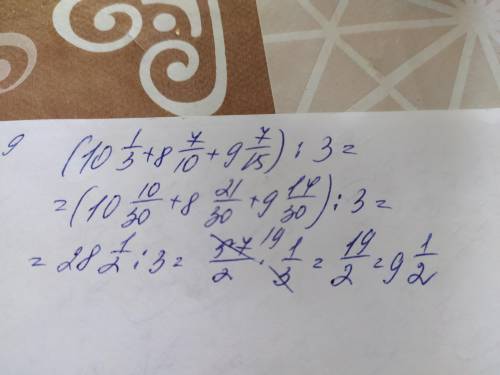 9 (10 1/3 + 8 7/10 + 9 7/15) : 3 =
= (10 10/30 + 8 21/30 + 9 14/30) : 3 =
= 28 1/2 : 3 = 57/2 19 · 1/3 = 19/2 = 9 1/2